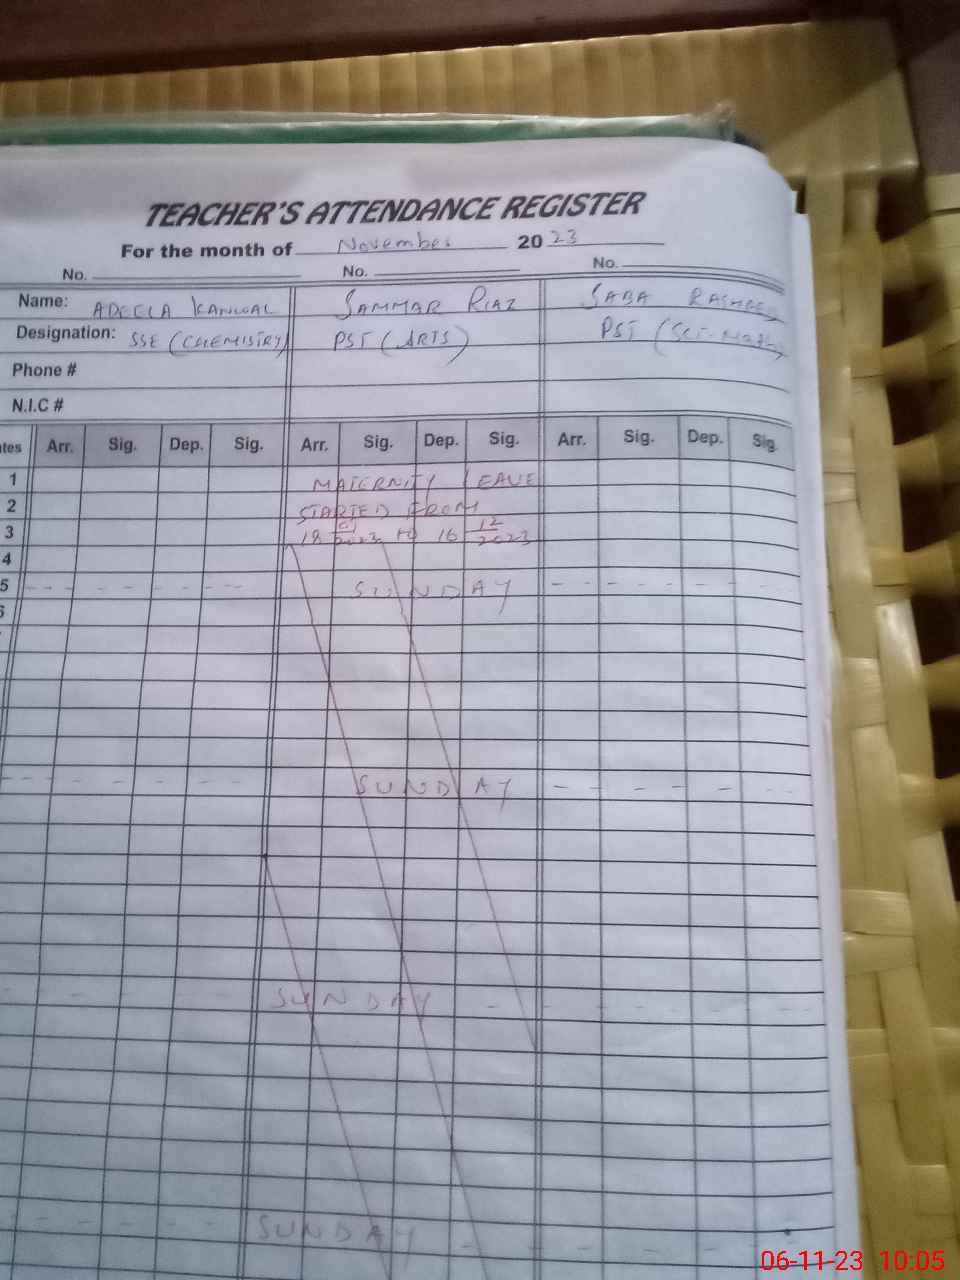 TEACHER'S ATTENDANCE REGISTER
For the month of November 20 23
No. No. No.
Name: ADEELA KANWAL SAMMAR RIAZ SABA RASHEED
Designation: SSE (CHEMISTRY) PST (ARTS) PST (SCI-Math)
Phone #
N.I.C #
Arr. Sig. Dep. Sig. Arr. Sig. Dep. Sig. Arr. Sig. Dep. Sig.
1 MATERNITY LEAVE
2 STARTED FROM
3 18 2023 to 16 12 2023
4
5 SUNDAY
SUNDAY
SUNDAY
SUNDAY
06-11-23 10:05